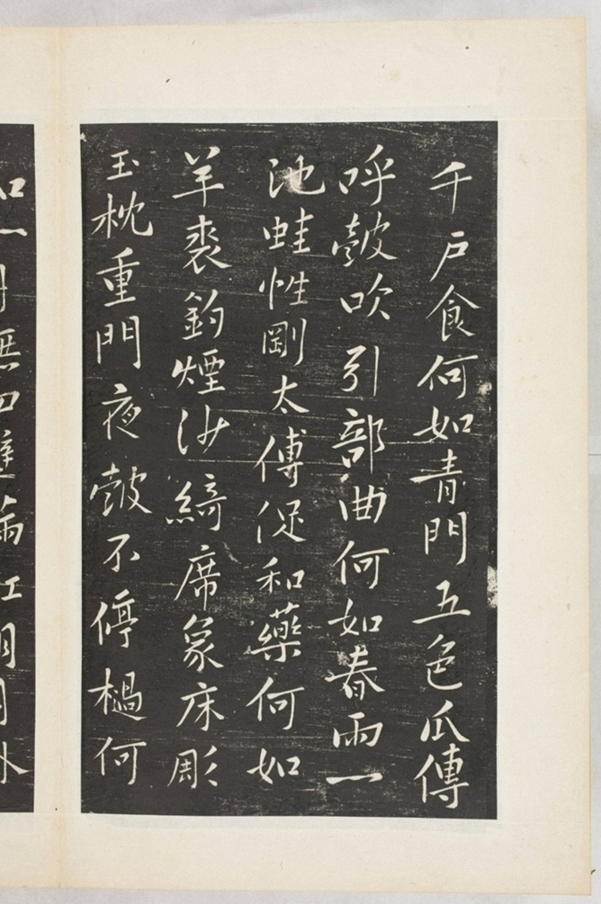 千戶食何如青門五色瓜傳
呼皷吹引部曲何如春雨一
池蛙性剛太傅促和藥何如
羊裘釣煙沙綺席象床彫
玉枕重門夜皷不停檛何